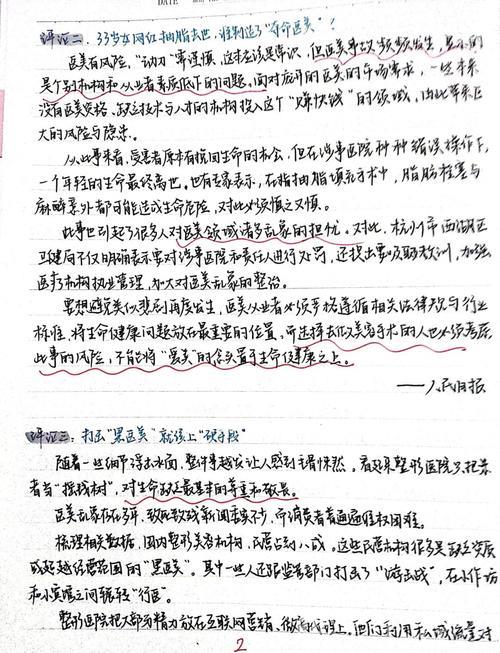 DATE
评论二：33岁女网红抽脂去世，谁制造了"夺命医美"！
医美有风险，"动刀"需谨慎，这本应该是常识，但医美事故频频发生，显示的
是个别机构和从业者素质低下的问题。面对庞大的医美的市场需求，一些本来
没有医美资格、缺乏技术与人才的机构投入这个"赚快钱"的领域，由此带来巨
大的风险与隐患。
从此事来看，受害者原本有挽回生命的办会，但在涉事医院种种错误操作下，
一个年轻的生命最终离世。也有专家表示，在脂抽脂填充手术中，脂肪栓塞与
麻醉意外都可能造成生命危险，对此必须慎之又慎。
此事也引起了很多人对医美领域诸多乱象的担忧。对此，杭州市西湖区
卫健局不仅明确表示要对涉事医院和责任人进行处罚，还提出要汲取教训，加强
医疗机构执业管理，加大对医美乱象的整治。
要想避免类似悲剧再度发生，医美从业者必须严格遵循相关法律规与行业
标准，将生命健康问题放在最重要的位置，而选择去做美容手术的人也必须考虑
此事的风险，不能将"爱美"的念头置于生命健康之上。
——人民日报
评论三：打击"黑医美"就该上"硬手段"
随着一些细节浮出水面，整件事越发让人感到毛骨悚然。看起来整形医院只把患
者当"摇钱树"，对生命缺乏最基本的尊重和敬畏。
医美乱象存在多年，致死致残新闻屡实不少，而消费者普遍遇维权困难。
梳理相关数据，国内整形美容机构，民营占到八成。这些民营机构很多是缺乏资质
或超越经营范围的"黑医美"。其中一些人还跟监管部门打击了"游击战"，在小作坊
和小宾馆之间辗转"行医"。
整形医院把大部分精力放在互联网营销、微商代理上。他们利用私域流量对
2